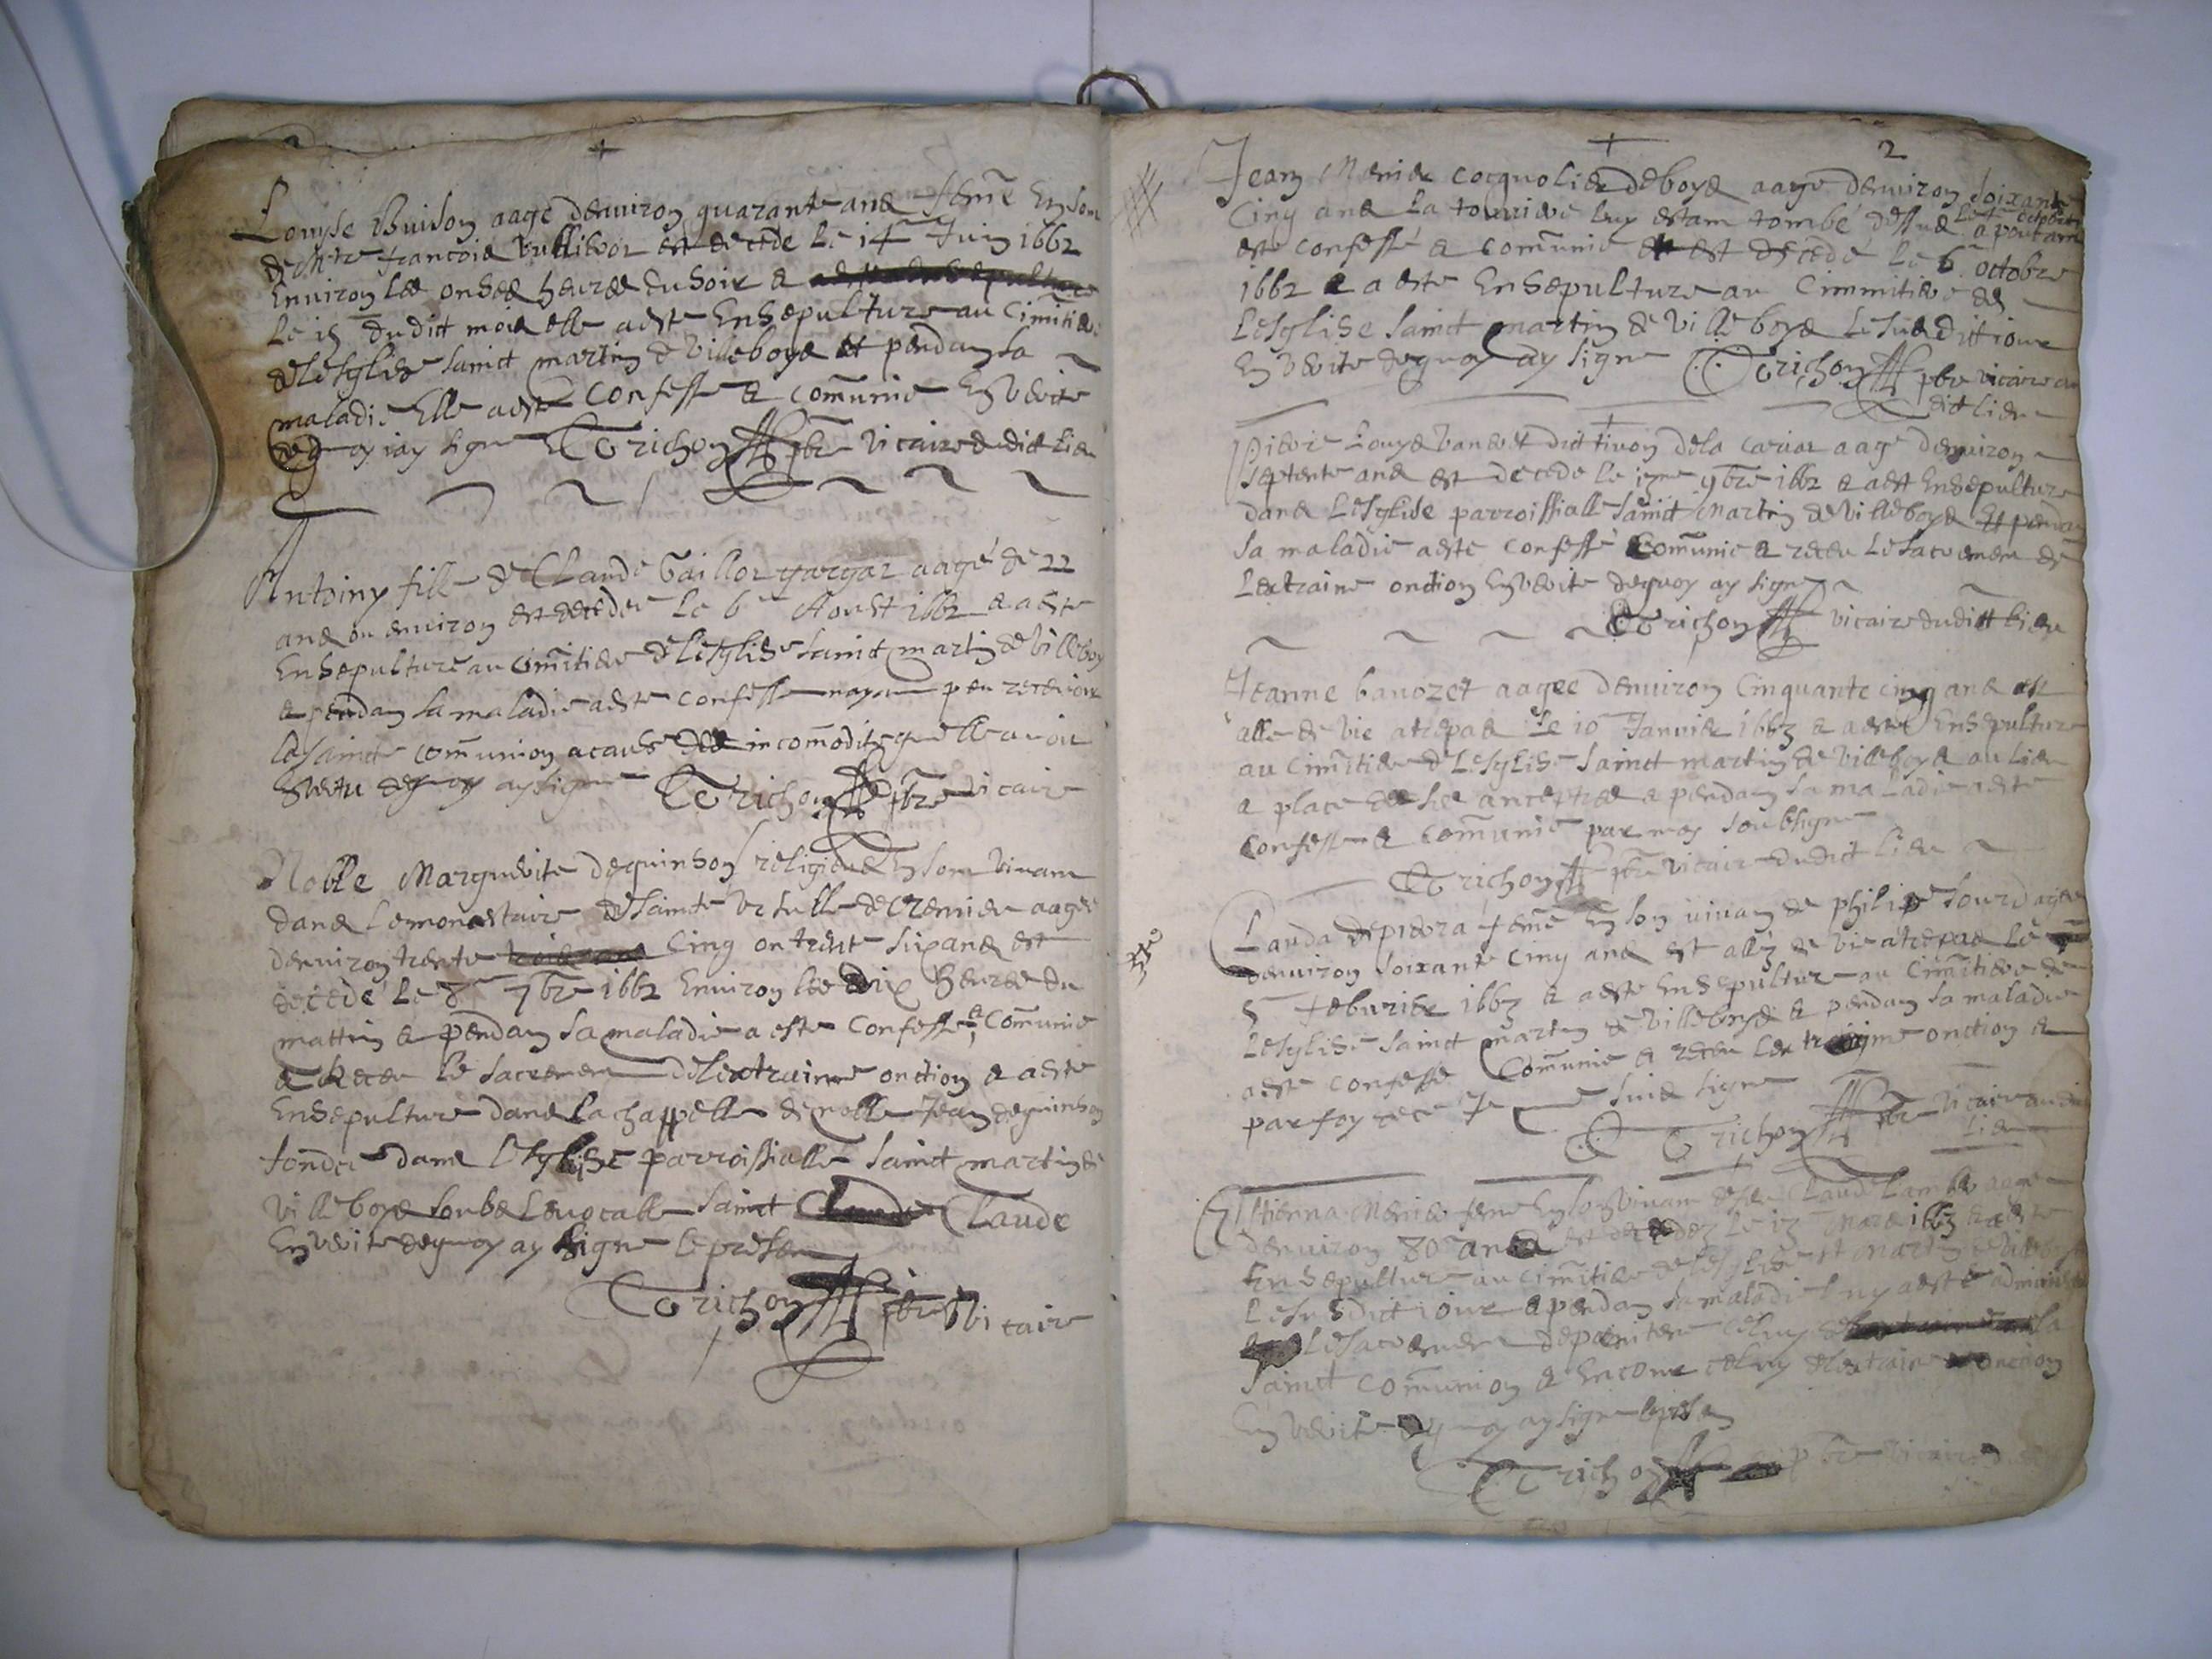 Louyse Buison aagé denviron quarante ans feme en son
de Mtre françois Vullierod est decede le 14 Juin 1662
Environ les onses heures du soir &
le 15 du dict mois elle aeste Ensepulture au Cimitie
de lesglise sainct martin de Villeboys et pendan sa
maladie Elle aeste Confesse & comunie En verite
de quoy iay signe Trichon pbre vicaire dudict lieu
Antoiny fille de Claude Gaillot aagé de 22
ans ou environ est decedee le 6e Aoust 1662 & aeste
Ensepulture au Cimitiere de lesglise sainct martin de villeboy
& pendan sa maladie aeste confesse nayan peu recevior
la saincte communion a cause des incomodites quelle avoit
En vertu de quoy ay signe Trichon pbre vicaire
Noble Marguerite de quinson religieuse En son vivant
dans le monastaire de saincte Ursulle de Cremieu aagee
denviron trente cinq ou trente six ans est
decede le 8 7bre 1662 Environ les dix heures du
mattin & pendan sa maladie a este Confesse & Comunie
& Receu le sacremen de lextraime onction & aeste
Ensepulture dans la chappelle de noble Jean de quinson
fondee dans lesglise parroissialle sainct martin de
villeboys soubs le vocable sainct Claude
En verite de quoy ay signe le presen
Trichon pbre Vicaire
2
Jean Menier cocquolier de boys aagé denviron soixante
Cinq ans la touviere luy estam tombé dessus le octobre a pourtan
este confessé & comunie est decedé le 6 octobre
1662 & a este Ensepulture au Cimmitiere de
lesglise sainct martin de villeboys le susdict iour
En verite de quoy ay signe Trichon pbre vicaire au
dict lieu
Pierre Louys vanet dict tivon de la aagé denviron
septente ans est decede le 9bre 1662 & aest Ensepulture
dans lesglise parroissialle sainct Martin de villeboys Et pendan
sa maladie aeste confessé Comunie & receu le sacremen de
lextraime onction En verite de quoy ay signe
Trichon vicaire dudict lieu
Jeanne bavozet aagee denviron Cinquante cinq ans est
alle de vie a trepas le 10 Janvier 1663 & a este Ensepulture
au Cimitiere de lesglise sainct martin de villeboys au lieu
& place de ses ancestres & pendan sa maladie aeste
Confesse & comunie par moy soubsigne
Trichon pbre vicaire dudict lieu
Clauda feme En son vivan de philipe sourd agee
denviron soixante cinq ans est allez de vie a trepas le
5 feburier 1663 & aeste Ensepulture au Cimitiere de
lesglise sainct martin de villeboys & pendan sa maladie
aeste confesse Comunie & receu lextraime onction &
par foy de ce Je me suis signe
Trichon pbre vicaire audict
lieu
Estienna Menier feme En son vivan de feu Claude Lambe aagee
denviron 80 ans est decedez le 13 Mars 1663 & aeste
Ensepulture au Cimitiere de lesglise st martin de villeboys
le susdict iour & pendan sa maladie luy aeste administre
le sacremen de penitence celuy de la
sainct comunion & Encore celuy de lextraime onction
En verite de quoy ay signe le presen
Trichon pbre vicaire